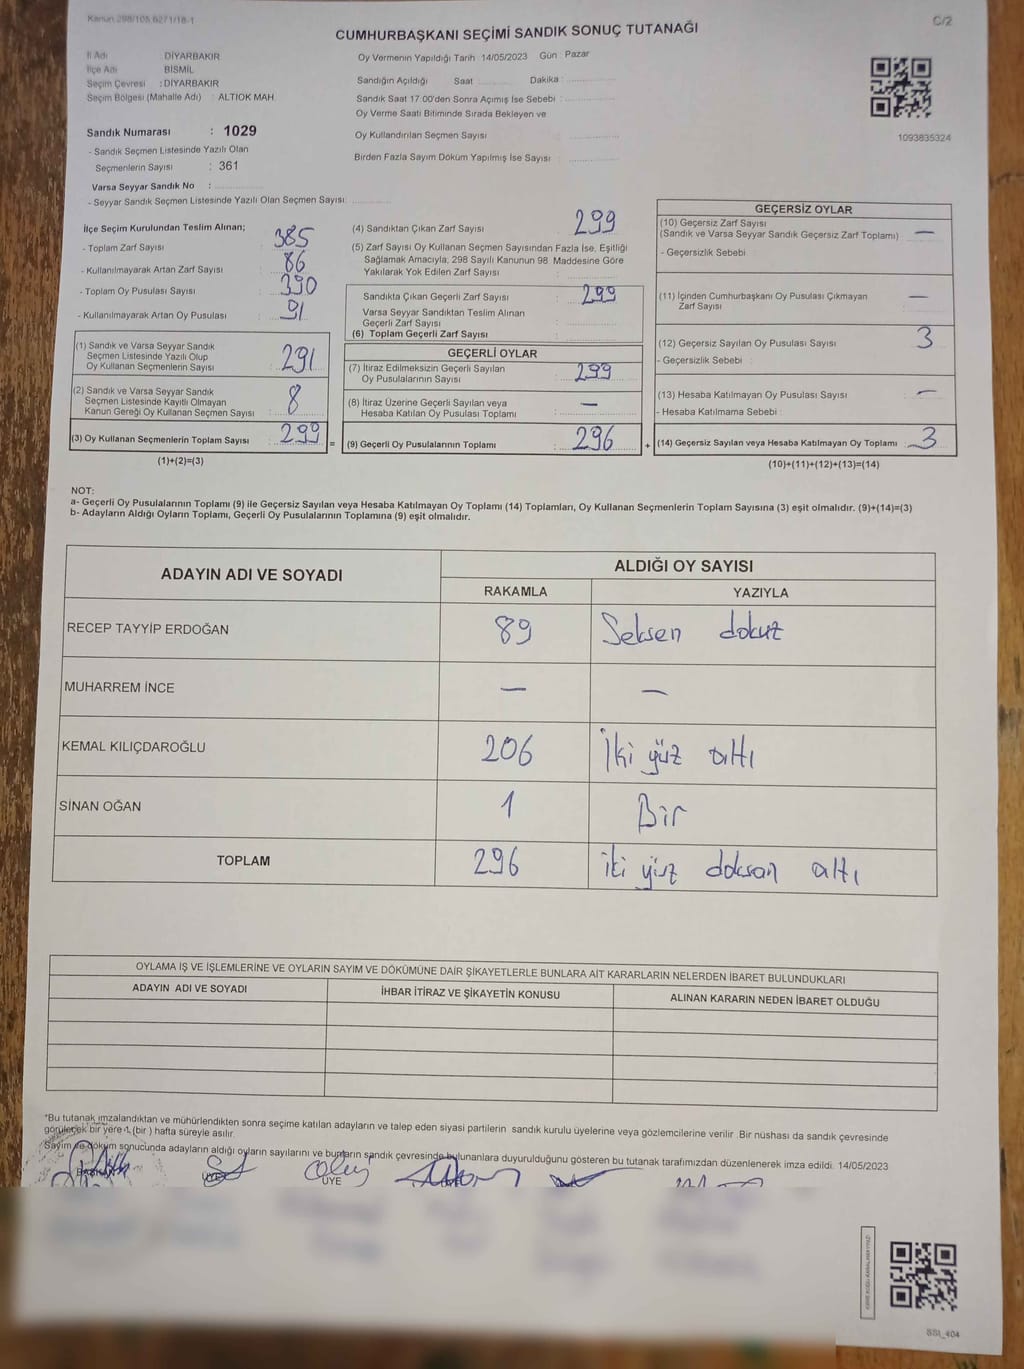 Kanun 298/105 6271/18-1
C/2
CUMHURBAŞKANI SEÇİMİ SANDIK SONUÇ TUTANAĞI
İl Adı DİYARBAKIR
İlçe Adı BİSMİL
Seçim Çevresi : DİYARBAKIR
Seçim Bölgesi (Mahalle Adı) : ALTIOK MAH.
Sandık Numarası : 1029
- Sandık Seçmen Listesinde Yazılı Olan
Seçmenlerin Sayısı : 361
Varsa Seyyar Sandık No :
- Seyyar Sandık Seçmen Listesinde Yazılı Olan Seçmen Sayısı:
Oy Vermenin Yapıldığı Tarih 14/05/2023 Gün Pazar
Sandığın Açıldığı Saat Dakika :
Sandık Saat 17.00'den Sonra Açımış İse Sebebi :
Oy Verme Saati Bitiminde Sırada Bekleyen ve
Oy Kullandırılan Seçmen Sayısı
Birden Fazla Sayım Döküm Yapılmış İse Sayısı
1093835324
İlçe Seçim Kurulundan Teslim Alınan;
- Toplam Zarf Sayısı : 385
- Kullanılmayarak Artan Zarf Sayısı : 86
- Toplam Oy Pusulası Sayısı : 390
- Kullanılmayarak Artan Oy Pusulası : 91
(1) Sandık ve Varsa Seyyar Sandık
Seçmen Listesinde Yazılı Olup
Oy Kullanan Seçmenlerin Sayısı : 291
(2) Sandık ve Varsa Seyyar Sandık
Seçmen Listesinde Kayıtlı Olmayan
Kanun Gereği Oy Kullanan Seçmen Sayısı : 8
(3) Oy Kullanan Seçmenlerin Toplam Sayısı : 299
(1)+(2)=(3)
=
(4) Sandıktan Çıkan Zarf Sayısı : 299
(5) Zarf Sayısı Oy Kullanan Seçmen Sayısından Fazla İse, Eşitliği
Sağlamak Amacıyla, 298 Sayılı Kanunun 98. Maddesine Göre
Yakılarak Yok Edilen Zarf Sayısı :
Sandıkta Çıkan Geçerli Zarf Sayısı : 299
Varsa Seyyar Sandıktan Teslim Alınan
Geçerli Zarf Sayısı :
(6) Toplam Geçerli Zarf Sayısı :
GEÇERLİ OYLAR
(7) İtiraz Edilmeksizin Geçerli Sayılan
Oy Pusulalarının Sayısı : 299
(8) İtiraz Üzerine Geçerli Sayılan veya
Hesaba Katılan Oy Pusulası Toplamı : —
(9) Geçerli Oy Pusulalarının Toplamı : 296
+
GEÇERSİZ OYLAR
(10) Geçersiz Zarf Sayısı
(Sandık ve Varsa Seyyar Sandık Geçersiz Zarf Toplamı) : —
- Geçersizlik Sebebi
(11) İçinden Cumhurbaşkanı Oy Pusulası Çıkmayan
Zarf Sayısı : —
(12) Geçersiz Sayılan Oy Pusulası Sayısı : 3
- Geçersizlik Sebebi :
(13) Hesaba Katılmayan Oy Pusulası Sayısı : —
- Hesaba Katılmama Sebebi :
(14) Geçersiz Sayılan veya Hesaba Katılmayan Oy Toplamı : 3
(10)+(11)+(12)+(13)=(14)
NOT:
a- Geçerli Oy Pusulalarının Toplamı (9) ile Geçersiz Sayılan veya Hesaba Katılmayan Oy Toplamı (14) Toplamları, Oy Kullanan Seçmenlerin Toplam Sayısına (3) eşit olmalıdır. (9)+(14)=(3)
b- Adayların Aldığı Oyların Toplamı, Geçerli Oy Pusulalarının Toplamına (9) eşit olmalıdır.
ADAYIN ADI VE SOYADI ALDIĞI OY SAYISI
RAKAMLA YAZIYLA
RECEP TAYYİP ERDOĞAN 89 Seksen dokuz
MUHARREM İNCE — —
KEMAL KILIÇDAROĞLU 206 İki yüz altı
SİNAN OĞAN 1 Bir
TOPLAM 296 iki yüz doksan altı
OYLAMA İŞ VE İŞLEMLERİNE VE OYLARIN SAYIM VE DÖKÜMÜNE DAİR ŞİKAYETLERLE BUNLARA AİT KARARLARIN NELERDEN İBARET BULUNDUKLARI
ADAYIN ADI VE SOYADI İHBAR İTİRAZ VE ŞİKAYETİN KONUSU ALINAN KARARIN NEDEN İBARET OLDUĞU
*Bu tutanak imzalandıktan ve mühürlendikten sonra seçime katılan adayların ve talep eden siyasi partilerin sandık kurulu üyelerine veya gözlemcilerine verilir. Bir nüshası da sandık çevresinde
görülecek bir yere 1 (bir) hafta süreyle asılır.
Sayım ve döküm sonucunda adayların aldığı oyların sayılarını ve bunların sandık çevresinde bulunanlara duyurulduğunu gösteren bu tutanak tarafımızdan düzenlenerek imza edildi. 14/05/2023
BAŞKAN ÜYE ÜYE
SSt_404